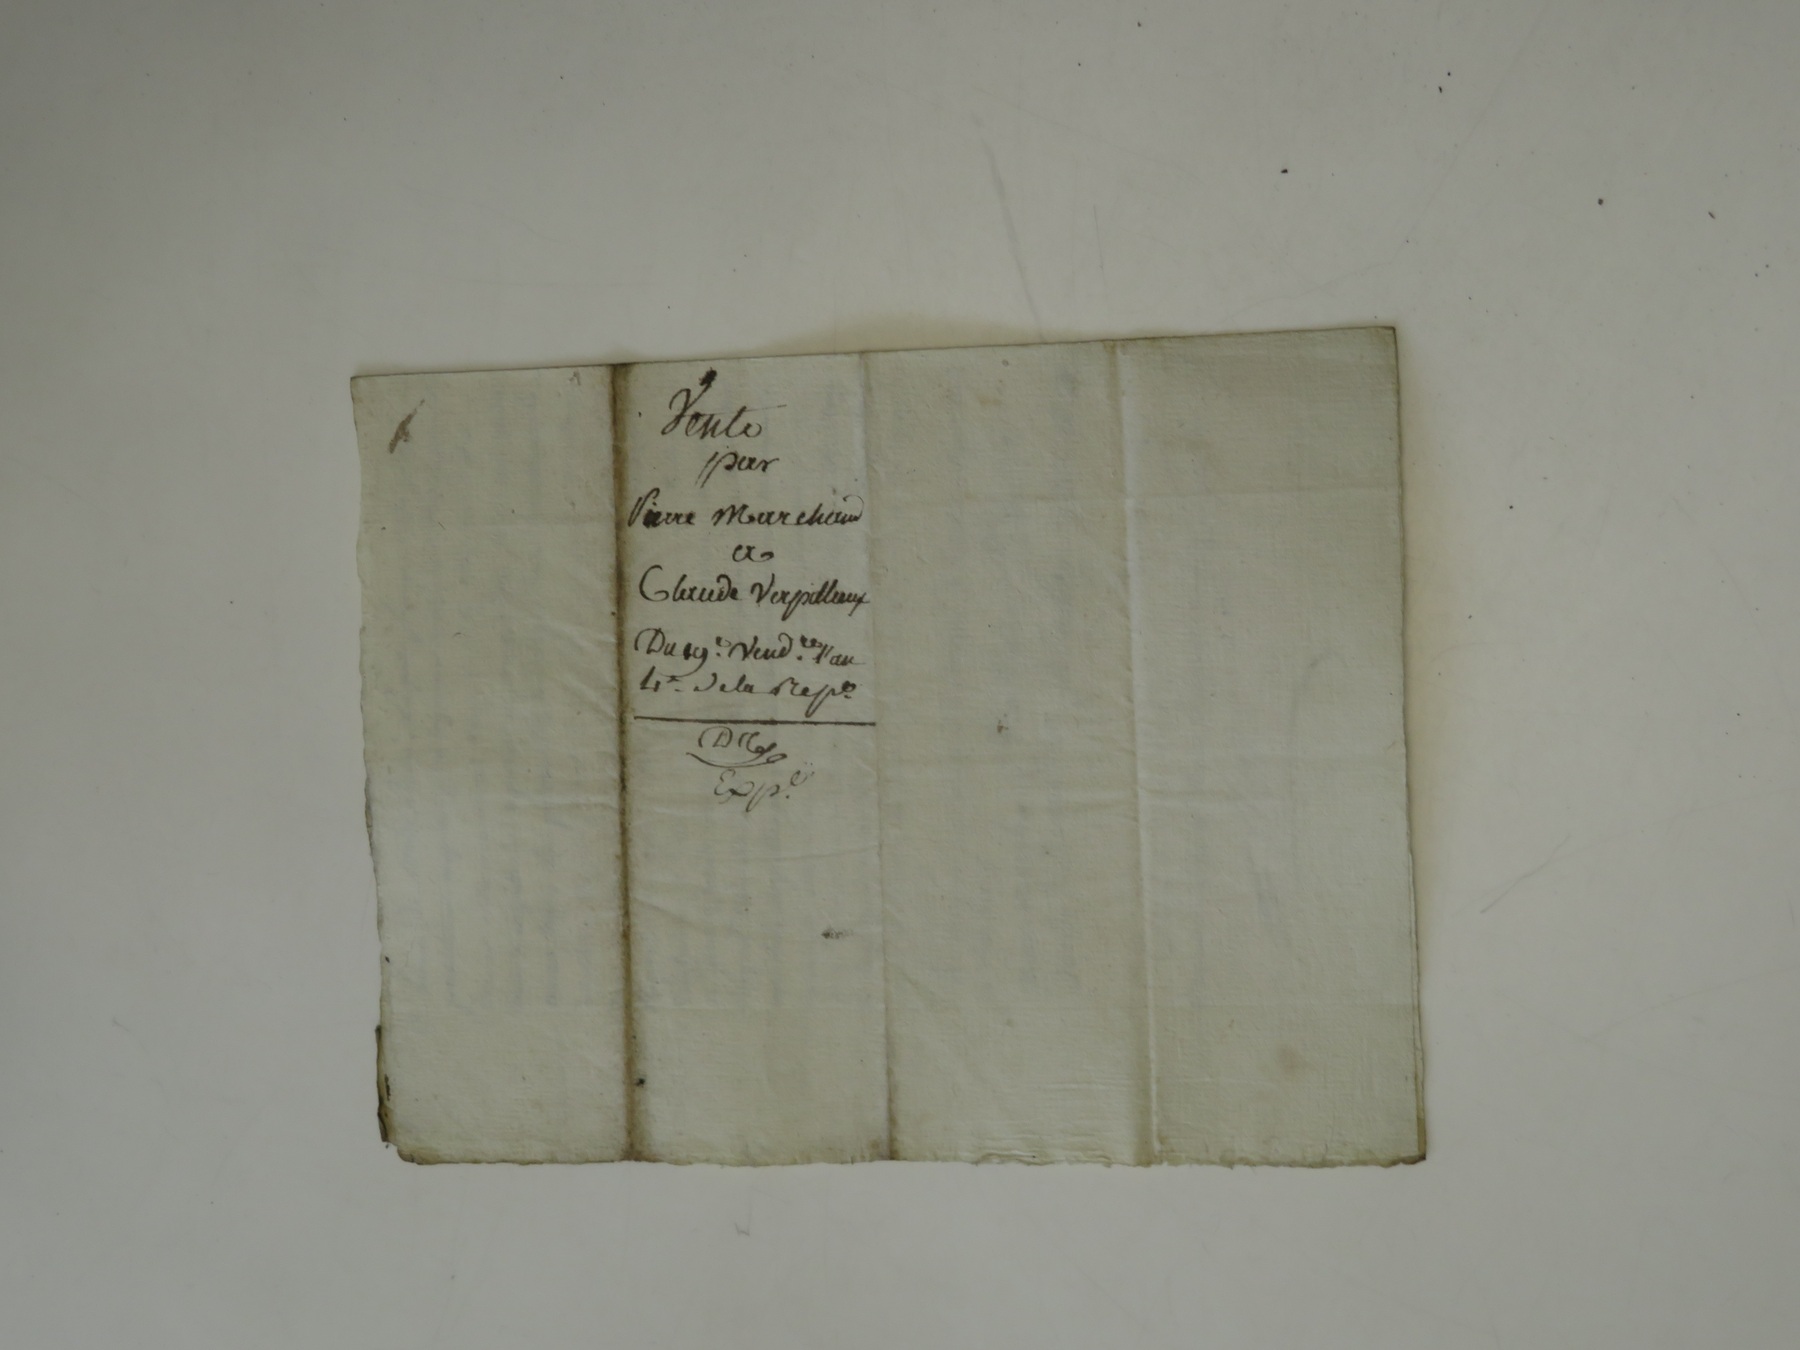 Vente
par
Pierre Marchand
a
Claude Verpilleux
Du 19e. Vend.re l'an
4e. de la Rep.e
Exp.e